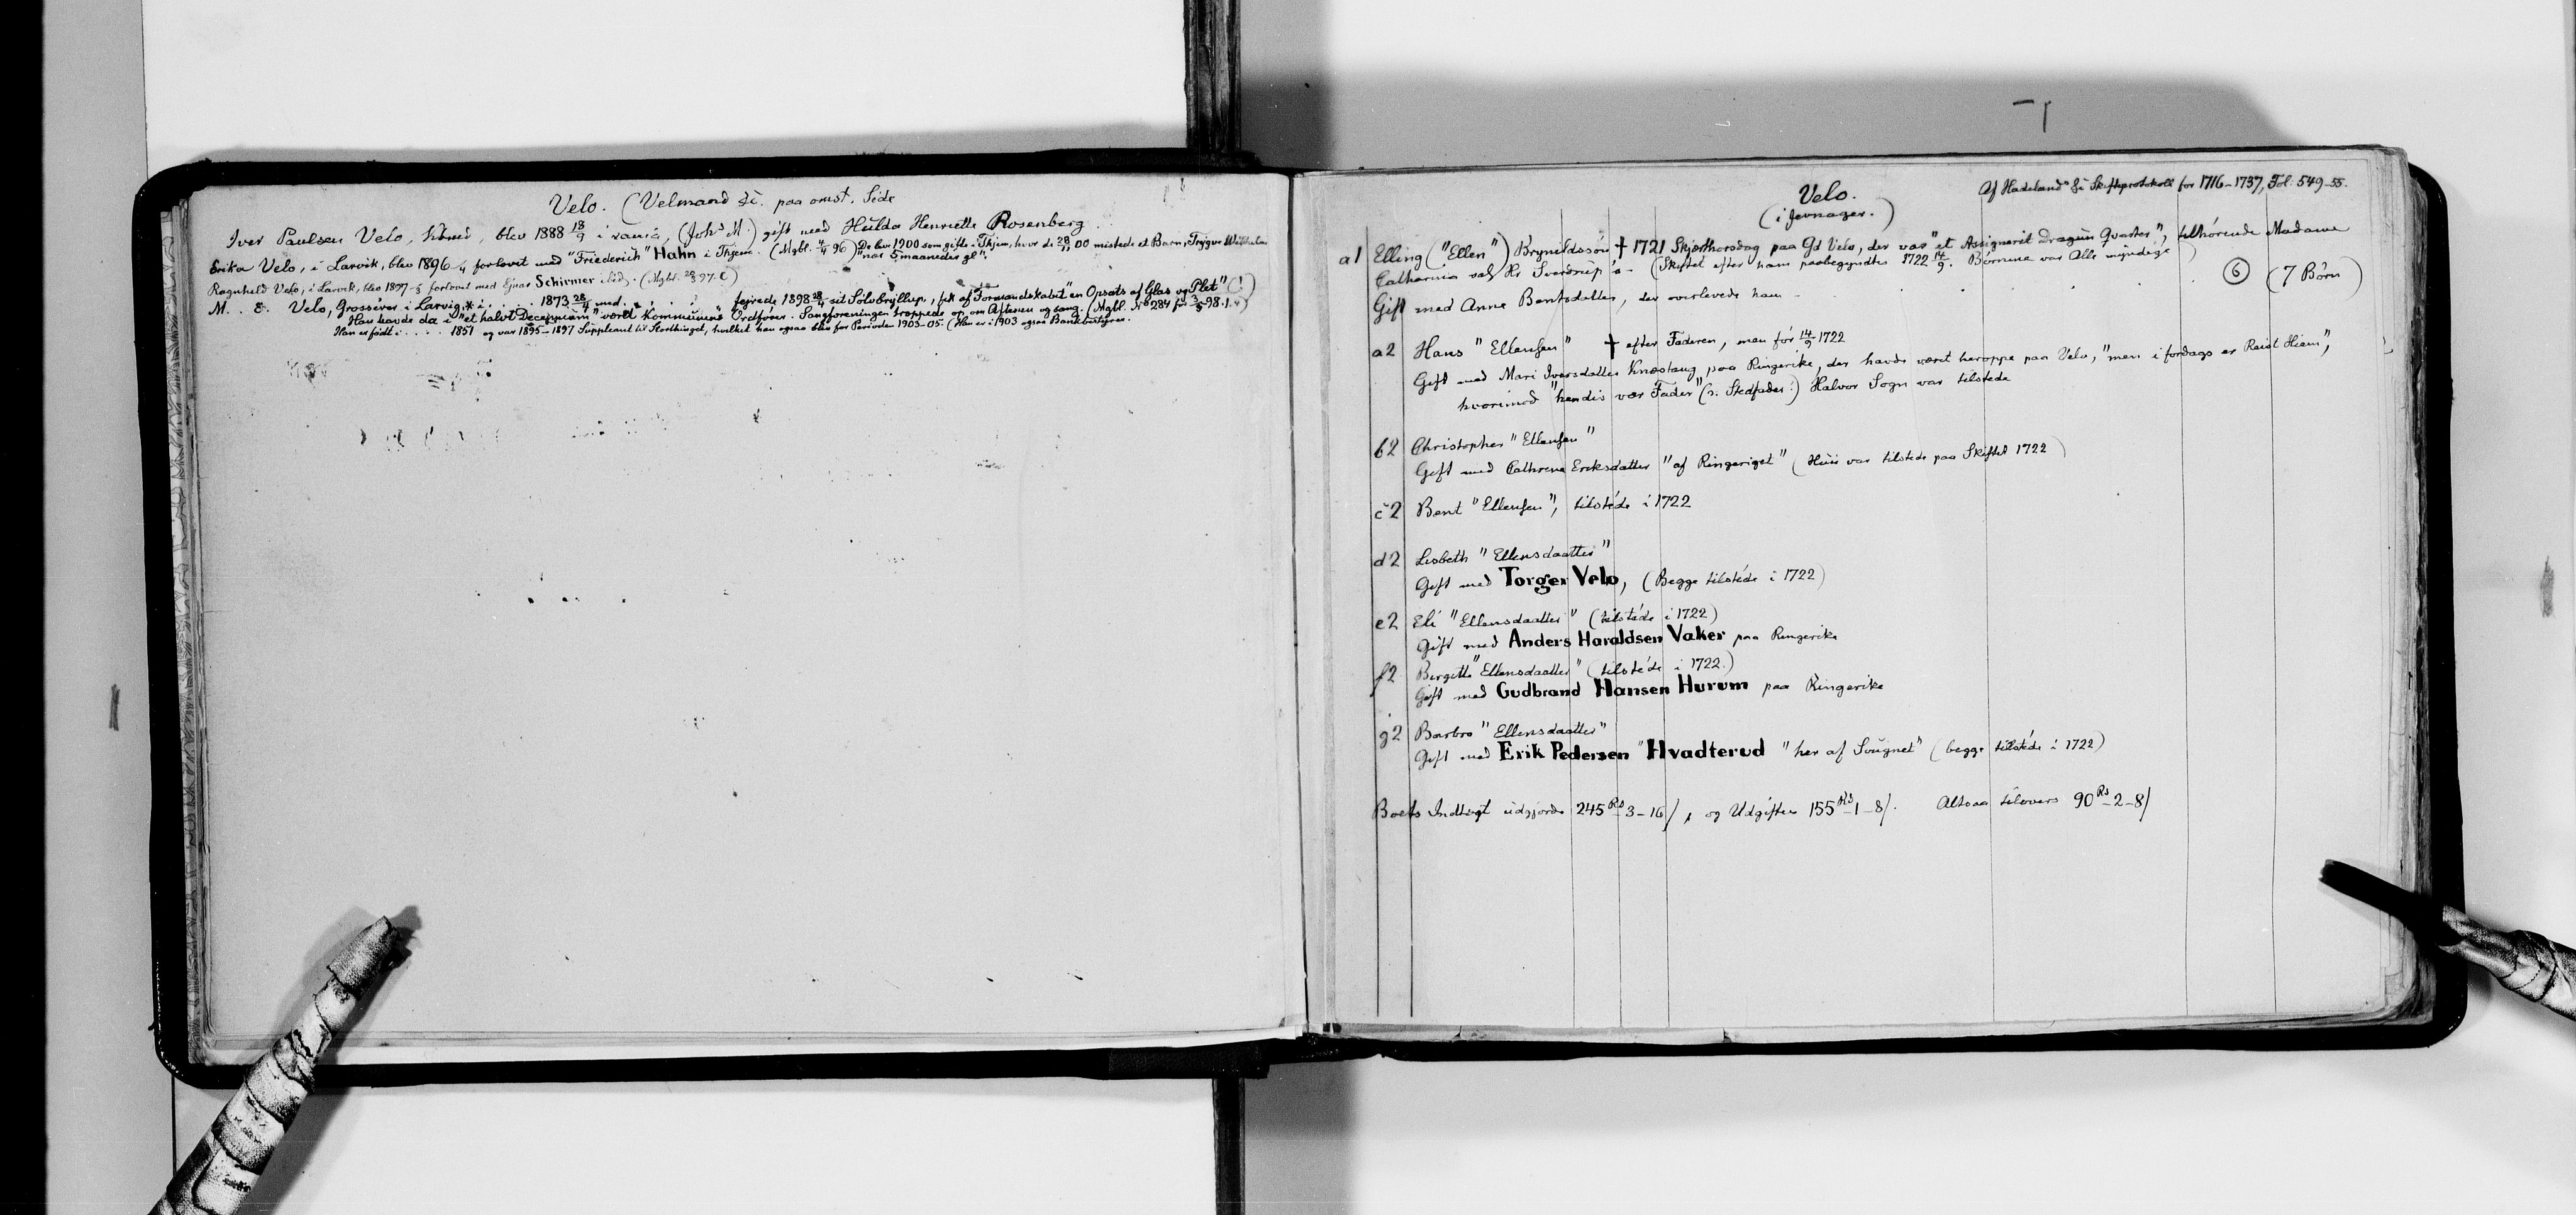 Velo. (Velmand &c. paa omst. Side
Iver Paulsen Velo, blev 1888 18/9 i (Johs M.) gift med Hulda Henriette Rosenberg
Erika Velo, i Larvik, blev 1896 4 forlovet med "Friederich" Hahn i Thjem. (Mgbl. 4/4 96) De bor 1900 som gifte i Thjem, hvor de 28/11 00 mistede et Barn, Trygve
"nær 5 maaneder gl".
Ragnhild Velo, i Larvik, blev 1897 forlovet med Ejnar Schirmer ibid. (Mgbl. 97. C)
M. . E. Velo, Grosserer i Larvig,* i . . . . 1873 28/4 med . . . . . fejrede 1898 28/4 sit Sølvbryllup, fik af Formandskabet "en Opsats af Glas og Plet" (!)
Han havde da i "et halvt Decennium" været Kommunens Ordfører. Sangforeningen troppede op om Aftenen og sang. (Mgbl. No 284 for 3/5 98.1.4)
Han er født i . . . . 1851 og var 1895-1897 Suppleant til Storthinget, hvilket han ogsaa blev for Perioden 1903-05. (Han er i 1903 ogsaa Bankbestyrer.
Velo.
(i Jevnager.)
Af Hadelands &c Skifteprotokoll for 1716-1737, Fol. 549-55.
a1 Elling ("Ellen") Bryneldssøn † 1721 Skjærthorsdag paa Gd Velo, der var "et Assignerit Dragun Qvarter", tilhørende Madame
Catharina sal. Hr Sverdrup's - (Skiftet efter ham paabegyndtes 1722 14/9. Børnene var Alle myndige)
Gift med Anne Bentsdatter, der overlevede ham - . . . . . ⑥ (7 Børn)
a2 Hans "Ellensen" † efter Faderen, men før 14/9 1722
Gift med Mari Iversdatter Knestang paa Ringerike, der havde været heroppe paa Velo, "men i fordags er Reist Hiem",
hvorimod "hendis vær Fader" (ɔ: Stedfader?) Halvor Sogn var tilstede
b2 Christopher "Ellensen"
Gift med Cathrine Eriksdatter "af Ringeriget" (Hun var tilstede paa Skiftet 1722)
c2 Bent "Ellensen", tilstede i 1722
d2 Lisbeth "Ellensdaatter"
Gift med Torger Velo, (Begge tilstede i 1722)
e2 Eli "Ellensdaatter" (tilstede i 1722)
Gift med Anders Haraldsen Vaker paa Ringerike
f2 Birgitte "Ellensdaatter" (tilstede i 1722.)
Gift med Gudbrand Hansen Hurum paa Ringerike
g2 Barbro "Ellensdaatter"
Gift med Erik Pedersen "Hvadterud "her af Sougnet" (begge tilstede i 1722)
Boets Indtægt udgjorde 245 Rd-3-16/, og Udgifter 155 Rd-1-8/. Altsaa tilovers 90 Rd-2-8/